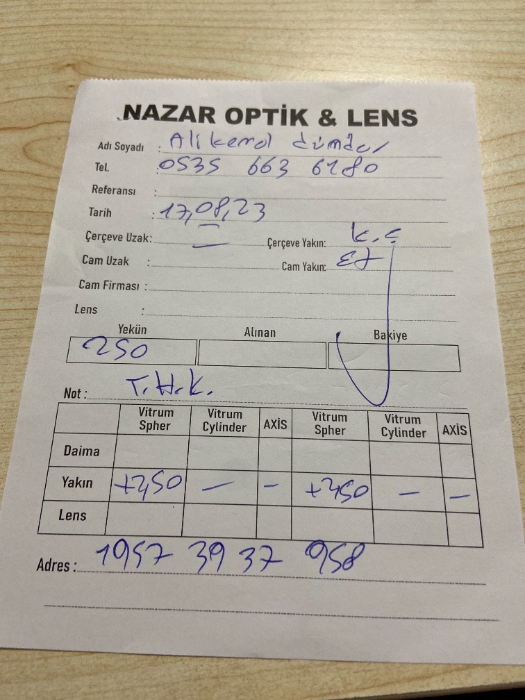 NAZAR OPTİK & LENS
Adı Soyadı : Ali kemal dümdar
Tel. : 0535 663 6180
Referansı :
Tarih : 17,08,23
Çerçeve Uzak: — Çerçeve Yakın: K.Ç
Cam Uzak : Cam Yakın:
Cam Firması :
Lens :
Yekün Alınan Bakiye
250
Not : T.H.K.
Vitrum Spher Vitrum Cylinder AXİS Vitrum Spher Vitrum Cylinder AXİS
Daima
Yakın +2,50 — — +2,50 — —
Lens
Adres : 1957 39 37 958